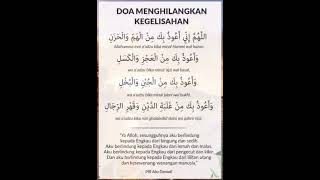 DOA MENGHILANGKAN
KEGELISAHAN
اللَّهُمَّ إِنِّي أَعُوذُ بِكَ مِنَ الْهَمِّ وَالْحَزَنِ
Allahumma inni a'udzu bika minal hammi wal hazan
وَأَعُوذُ بِكَ مِنَ الْعَجْزِ وَالْكَسَلِ
wa a'udzu bika minal 'ajzi wal kasal,
وَأَعُوذُ بِكَ مِنَ الْجُبْنِ وَالْبُخْلِ
wa a'udzu bika minal jubni wal bukhl,
وَأَعُوذُ بِكَ مِنْ غَلَبَةِ الدَّيْنِ وَقَهْرِ الرِّجَالِ
wa a'udzu bika min ghalabatid daini wa qahrir rijal.
"Ya Allah, sesungguhnya aku berlindung
kepada Engkau dari bingung dan sedih.
Aku berlindung kepada Engkau dari lemah dan malas.
Aku berlindung kepada Engkau dari pengecut dan kikir.
Dan aku berlindung kepada Engkau dari lilitan utang
dan kesewenang-wenangan manusia."
HR Abu Dawud